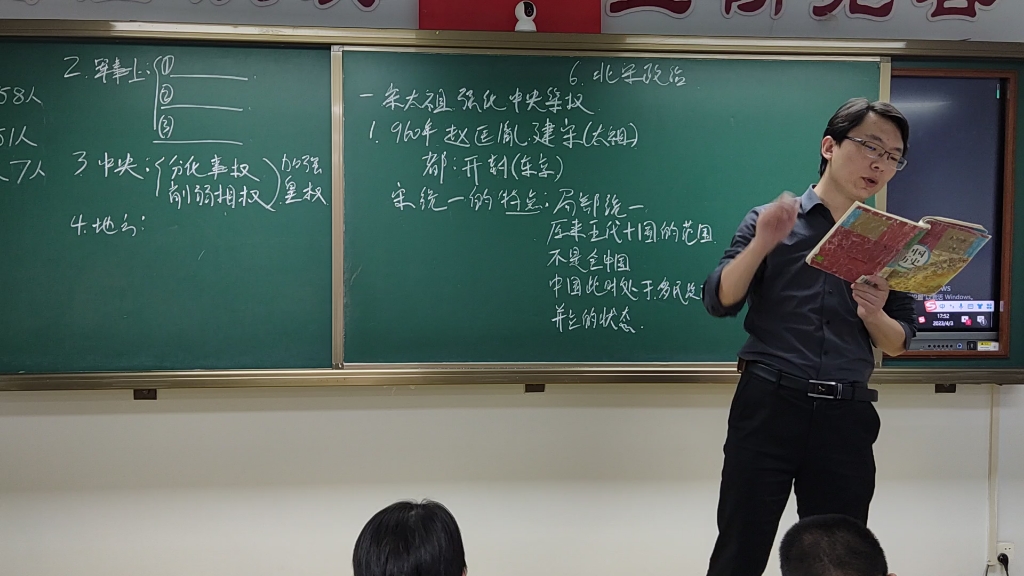 58人
51人
7人
2.军事上:①
②
③
3 中央:分化事权
削弱相权
加强
皇权
4.地方:
6.北宋政治
一 宋太祖强化中央集权
1. 960年 赵匡胤 建宋(太祖)
都:开封(东京)
宋统一的特点:局部统一
原来五代十国的范围
不是全中国
中国此时处于多民族
并立的状态.
中国
历史
Windows.
17:52
2023/4/3